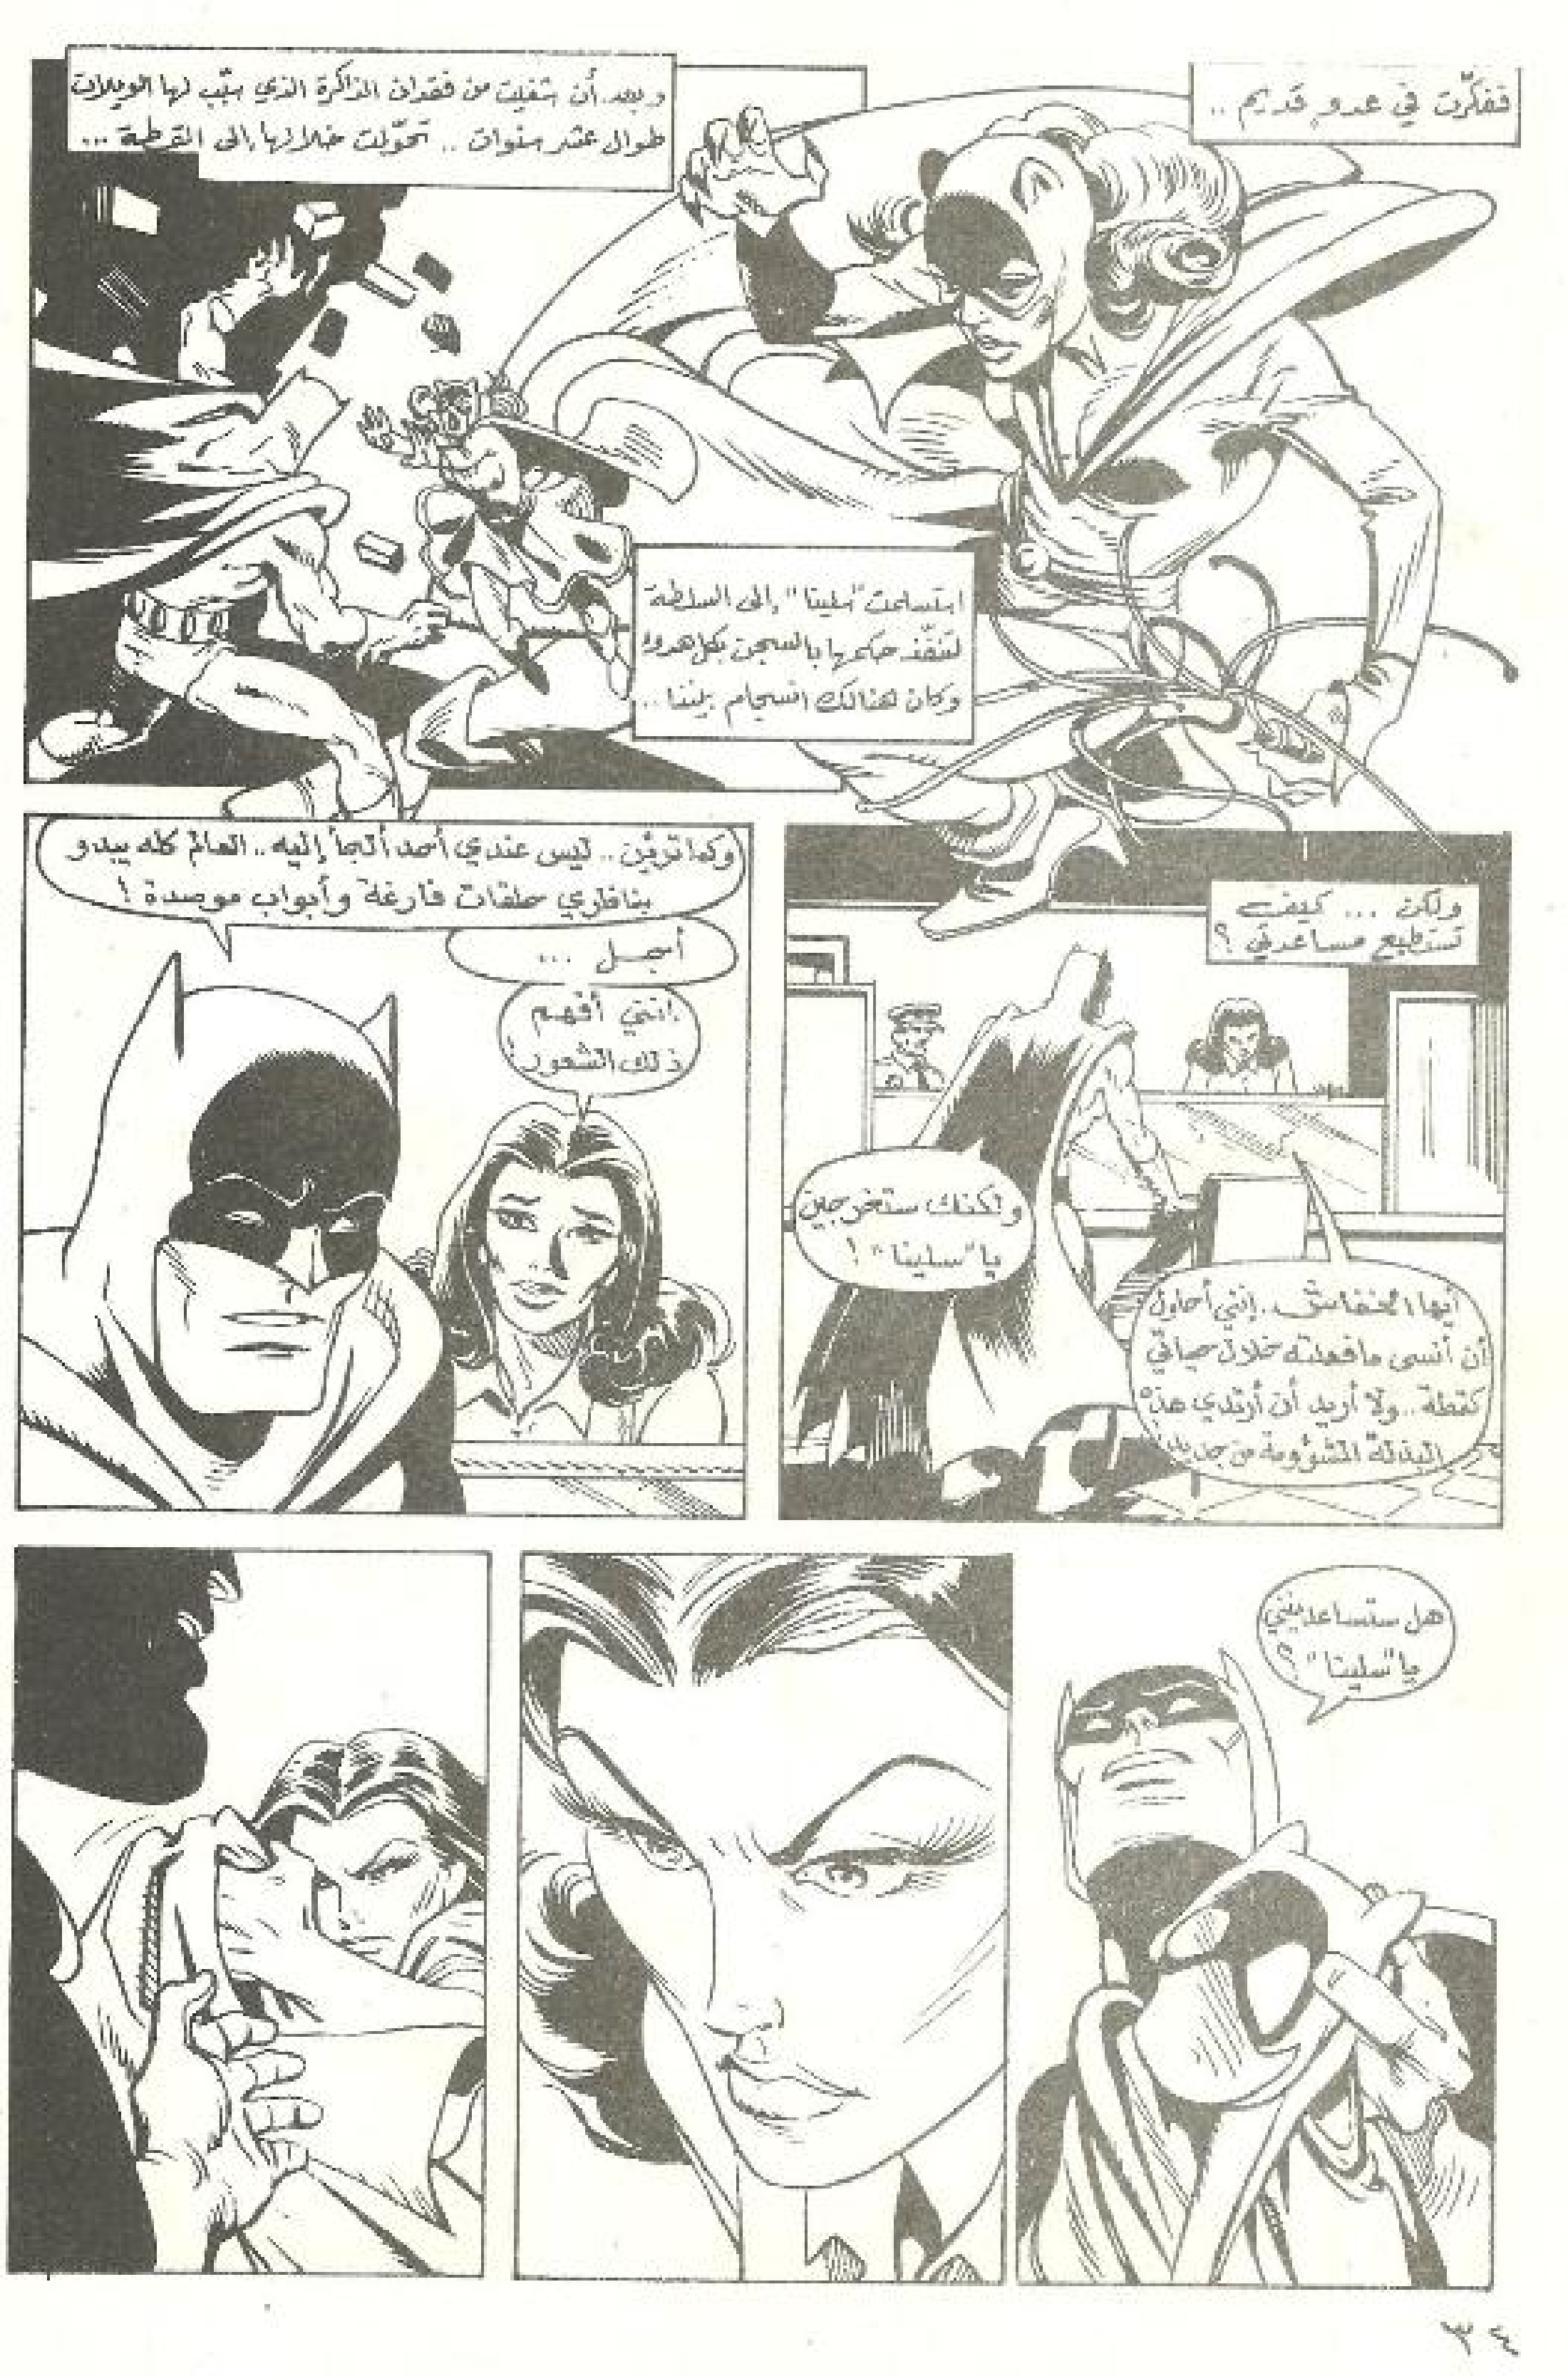 ففكّرت في عدو قديم ..
وبعد أن شفيت من فقدان الذاكرة الذي سبّب لها الويلات
طوال عشر سنوات .. تحوّلت خلالها إلى القطة ...
استسلمت "سلينا" إلى السلطة
لتنفّذ حكمها بالسجن بكل هدوء
وكان هنالك انسجام بيننا ..
ولكن ... كيف
تستطيع مساعدتي ؟
ولكنك ستخرجين
يا "سلينا" !
أيها الخفاش .. إنني أحاول
أن أنسى ما فعلته خلال حياتي
كقطة .. ولا أريد أن أرتدي هذه
البذلة المشؤومة من جديد
وكما ترين .. ليس عندي أحد ألجأ إليه .. العالم كله يبدو
بناظري حلقات فارغة وأبواب موصدة !
أجل ...
إنني أفهم
ذلك الشعور !
هل ستساعديني
يا "سلينا" ؟